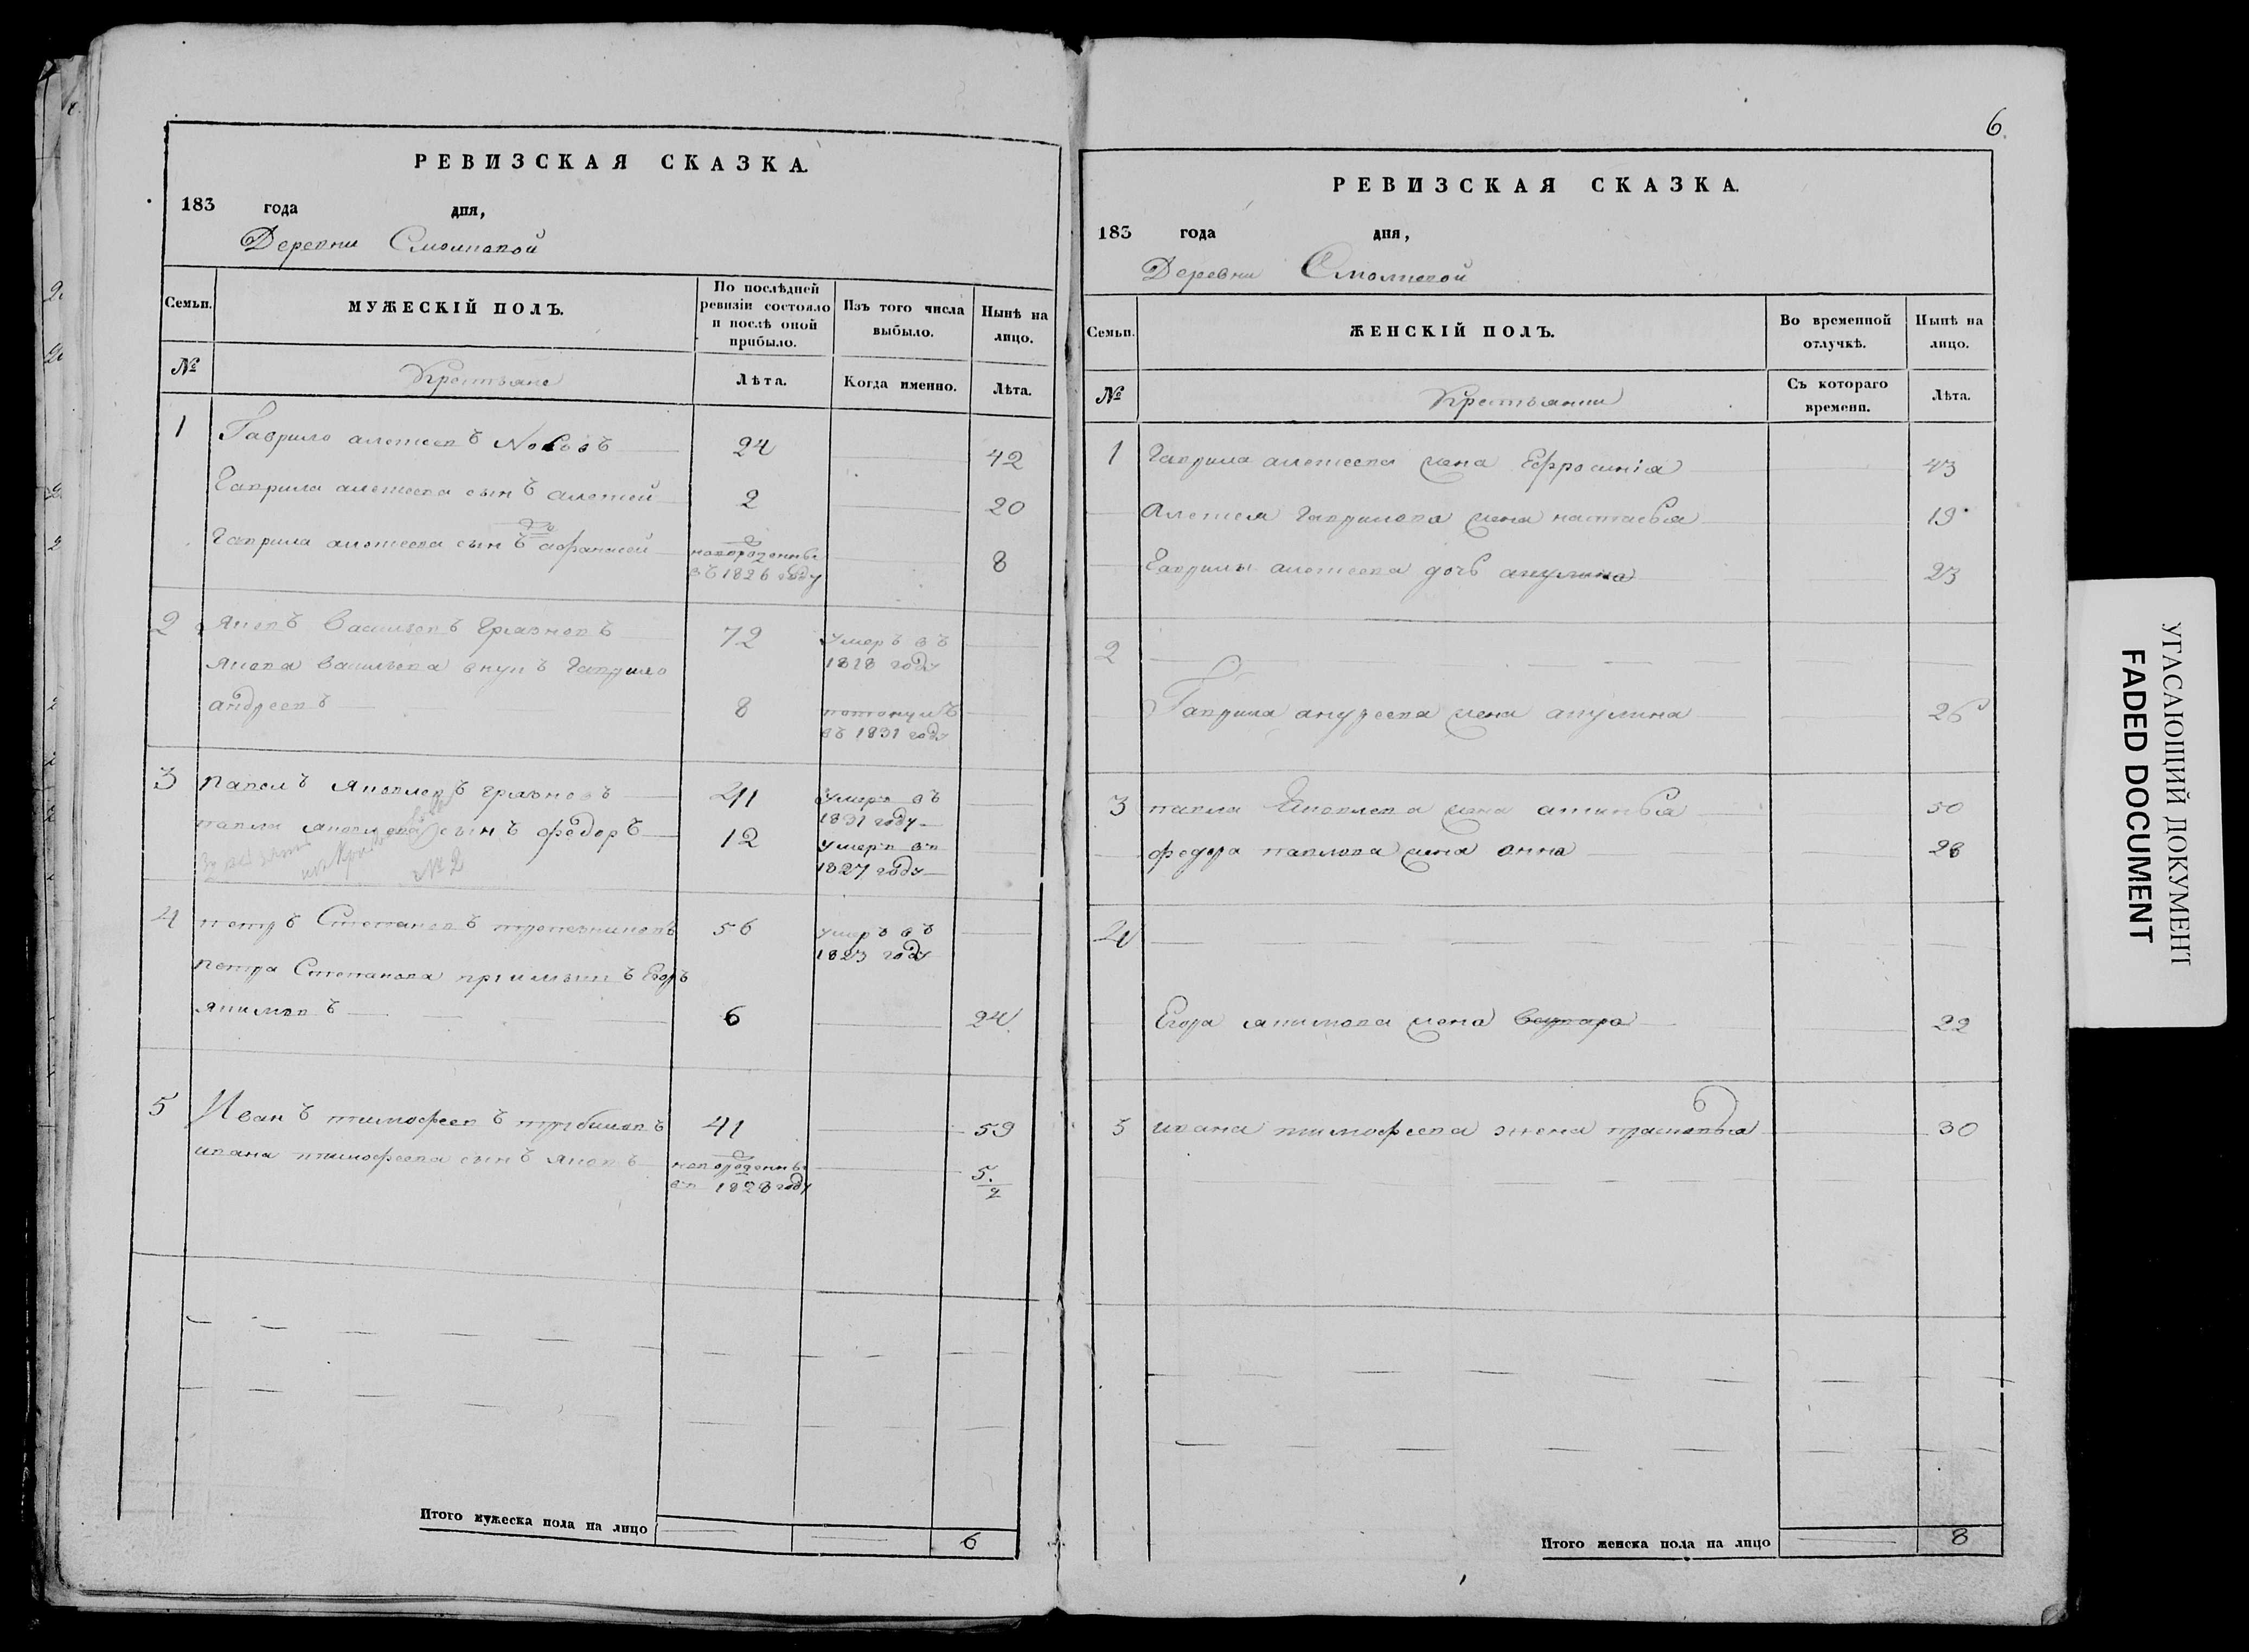 РЕВИЗСКАЯ СКАЗКА.
183 года дня,
Деревни Смолиновой
Семьи.
МУЖЕСКІЙ ПОЛЪ.
По послѣдней ревизіи состояло и послѣ оной прибыло.
Изъ того числа выбыло.
Нынѣ на лицо.
№
Крестьяне
Лѣта.
Когда именно.
Лѣта.
1 Гаврило алексеевъ 24 42
Гаврила алексеева сынъ алексей 2 20
Гаврила алексеева сынъ 2й афанасей новорожденны въ 1826 году 8
2 Яковъ Васильевъ Грязновъ 72 умеръ въ 1828 году
Якова Васильева внукъ Гаврило
андреевъ 8 потонулъ въ 1831 году
3 павелъ Яковлевъ грязновъ 41 умеръ въ 1831 году
павла яковлева сынъ федоръ 12 умеръ въ 1827 году
№ 2
4 петръ Степановъ 56 умеръ въ 1823 году
петра Степанова пріимышъ Егоръ
якимовъ 6 24
5 Иванъ тимофеевъ 41 59
ивана тимофеева сынъ Яковъ новорожденны въ 1828 году 5.
Итого мужеска пола на лицо 6
6.
РЕВИЗСКАЯ СКАЗКА.
183 года дня,
Деревни Смолиновой
Семьи.
ЖЕНСКІЙ ПОЛЪ.
Во временной отлучкѣ.
Нынѣ на лицо.
№
Крестьянки
Съ котораго времени.
Лѣта.
1 Гаврила алексеева жена Ефросинія 43
Алексея Гаврилова жена настасья 19
Гаврилы алексеева дочь акулина 23
2
Гаврила андреева жена акулина 26
3 павла Яковлева жена 50
федора павлова жена анна 28
4
Егора якимова жена 22
5 ивана тимофеева жена прасковья 30
Итого женска пола на лицо 8
УГАСАЮЩИЙ ДОКУМЕНТ
FADED DOCUMENT